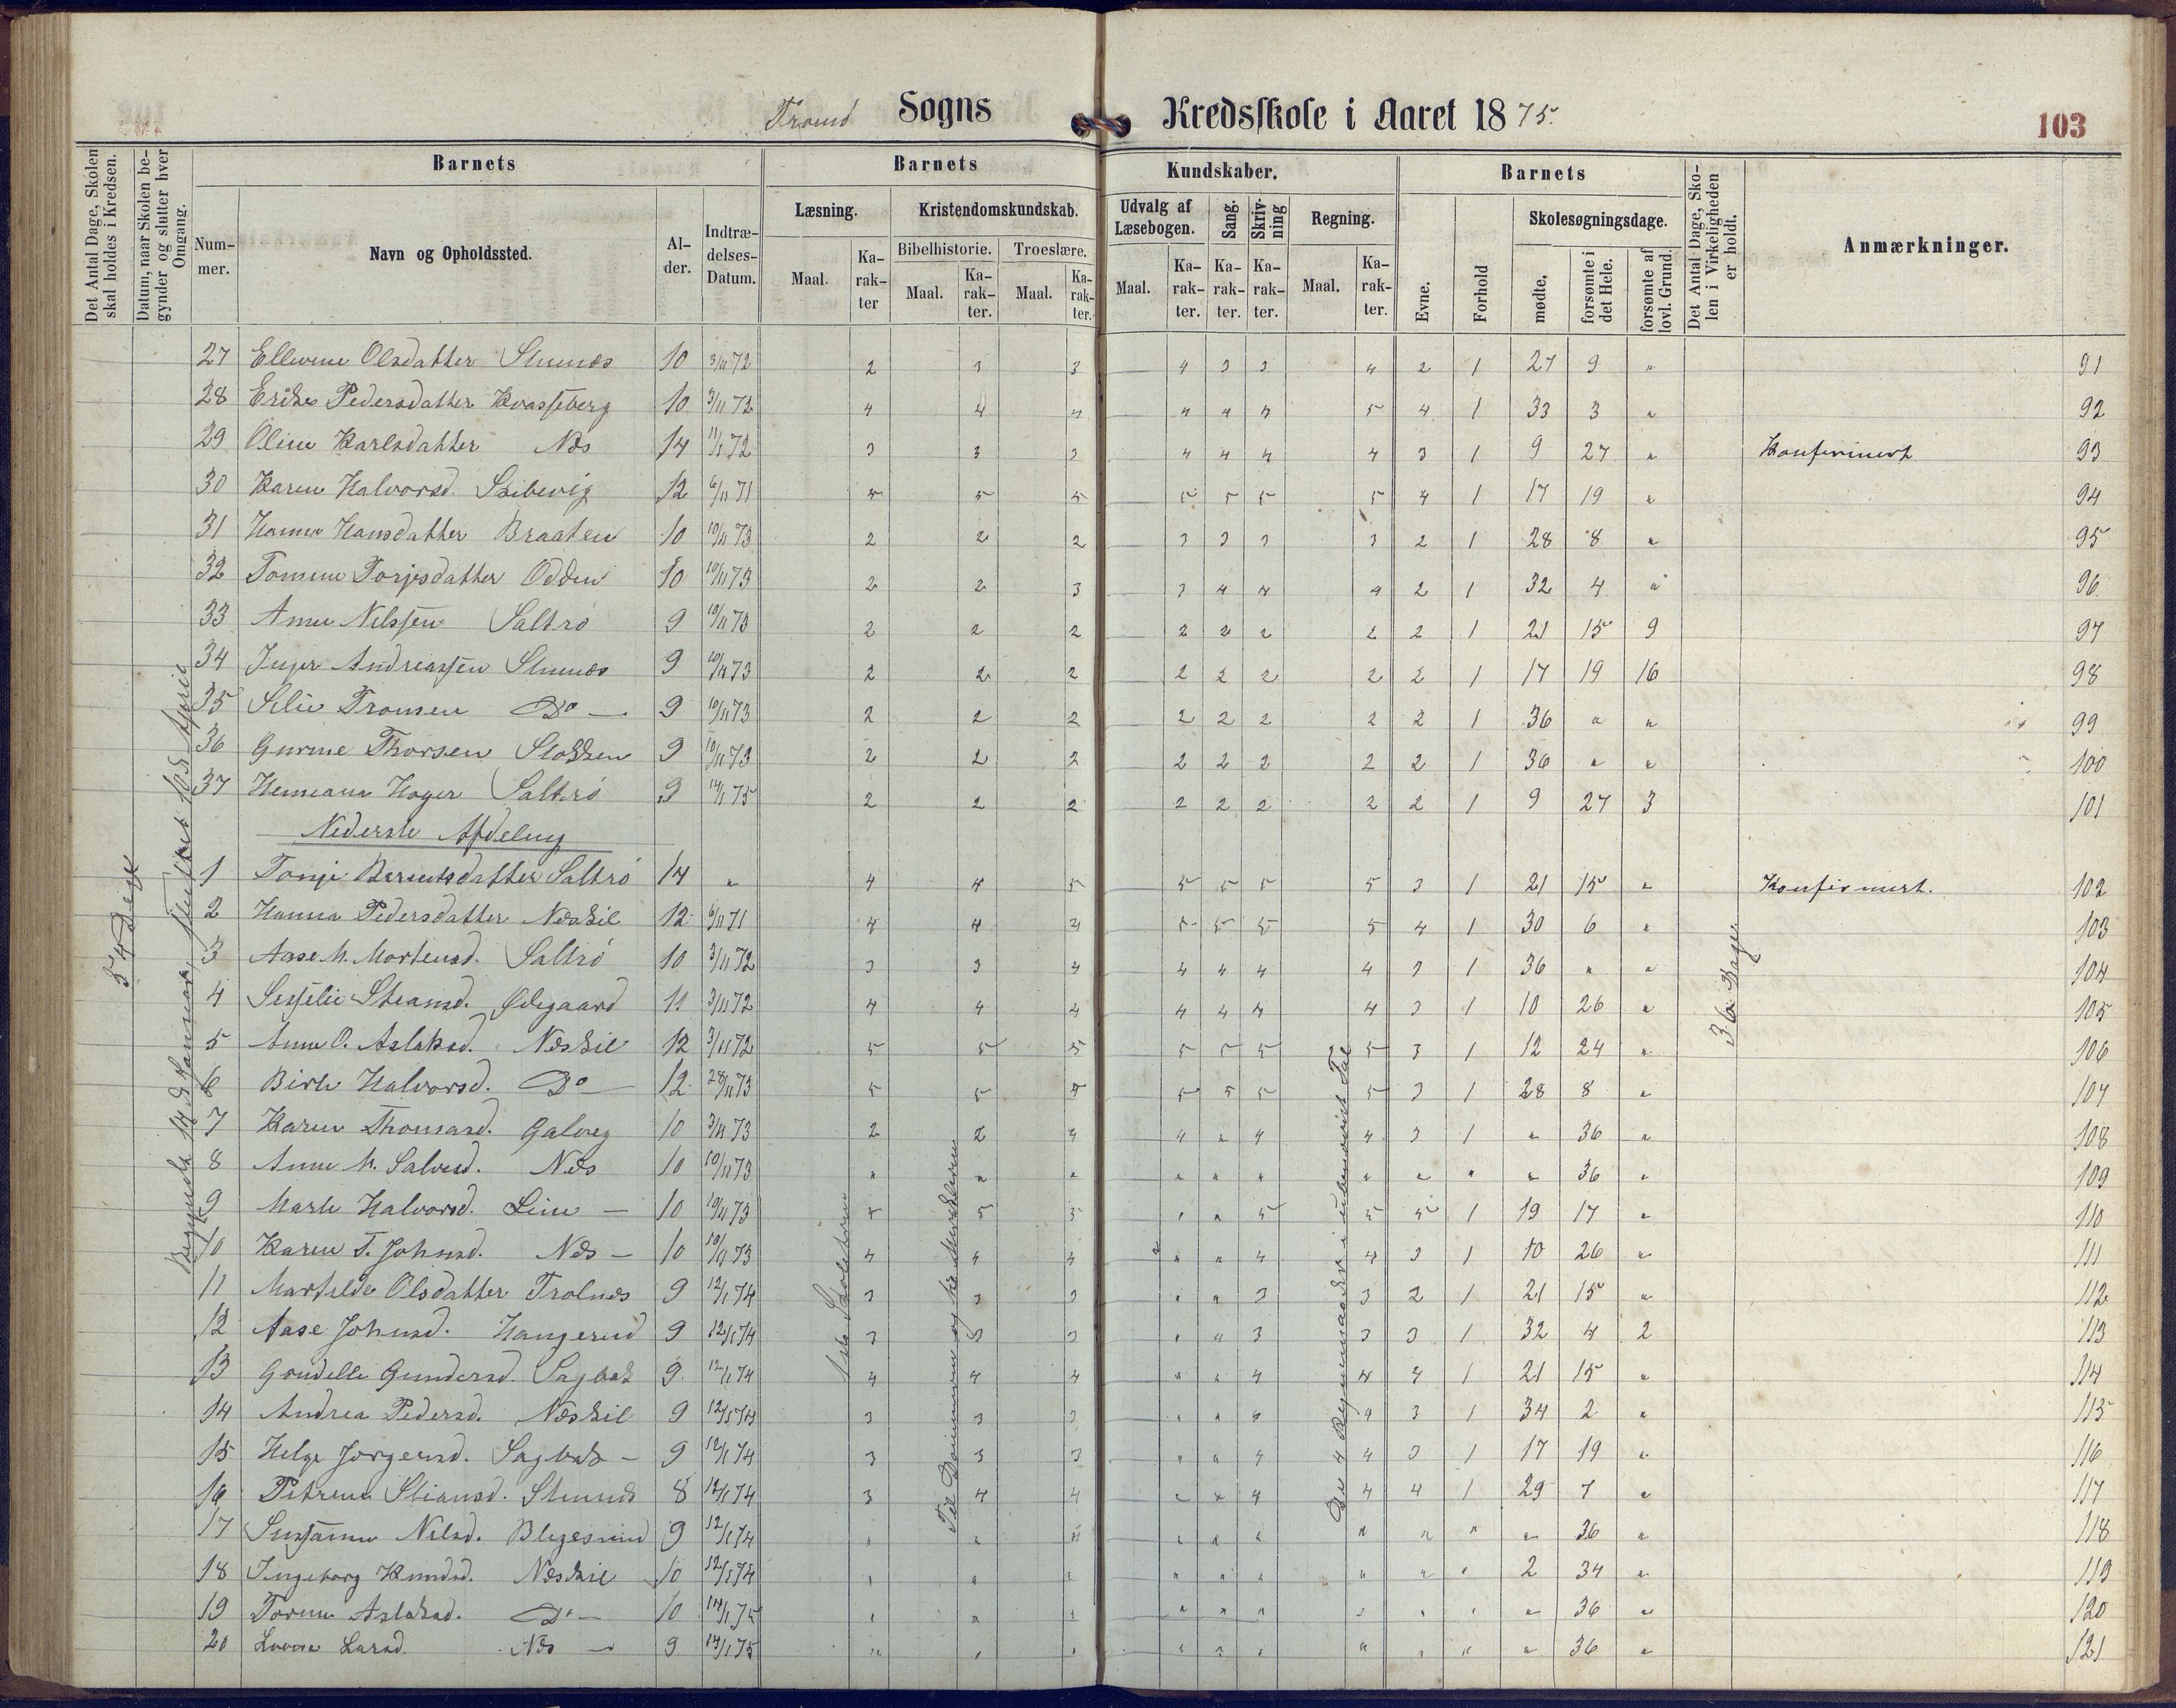 Tromø Sogns Kredsskole i Aaret 1875.
103
Det Antal Dage, Skolen skal holdes i Kredsen.
Datum, naar Skolen begynder og slutter hver Omgang.
Barnets
Num-mer.
Navn og Opholdssted.
Al-der.
Indtræ-delses-Datum.
Barnets Kundskaber.
Læsning.
Kristendomskundskab.
Bibelhistorie. Troeslære.
Udvalg af Læsebogen.
Sang.
Skriv-ning
Regning.
Maal. Ka-rak-ter Maal. Ka-rak-ter. Maal. Ka-rak-ter. Maal. Ka-rak-ter. Ka-rak-ter. Ka-rak-ter. Maal. Ka-rak-ter.
Barnets
Evne. Forhold
Skolesøgningsdage.
mødte. forsømte i det Hele. forsømte af lovl. Grund.
Det Antal Dage, Sko-len i Virkeligheden er holdt.
Anmærkninger.
27 Ellevine Olsdatter 10 3/11 72 2 3 3 4 3 3 4 2 1 27 9 " 91
28 Pedersdatter Kvasseberg 10 3/11 72 4 4 4 4 4 4 5 4 1 33 3 " 92
29 Oline Karlsdatter Næs 14 11/1 72 3 3 3 4 4 4 4 3 1 9 27 " Konfirmert 93
30 Karen Halvorsd. Skibevig 12 6/11 71 5 5 5 5 5 5 5 4 1 17 19 " 94
31 Hansdatter Braaten 10 10/11 73 2 2 2 3 3 3 3 2 1 28 8 " 95
32 Tomine Torjesdatter Odden 10 10/11 73 2 2 3 3 4 4 4 2 1 32 4 " 96
33 Anne Nilssen Saltrø 9 10/11 73 2 2 2 2 2 2 2 2 1 21 15 9 97
34 Inger Andreassen 9 10/11 73 2 2 2 2 2 2 2 2 1 17 19 16 98
35 Tromsen Do — 9 10/11 73 2 2 2 2 2 2 2 2 1 36 " " 99
36 Gurine Thorsen Stokken 9 10/11 73 2 2 2 2 2 2 2 2 1 36 " " 100
37 Hoyer Saltrø 9 14/1 75 2 2 2 2 2 2 2 2 1 9 27 3 101
Nederste Afdeling
1 Tonje Berentsdatter Saltrø 14 " 4 4 5 5 5 5 5 3 1 21 15 " Konfirmert. 102
2 Hanna Pedersdatter Næskil 12 6/11 71 4 4 4 5 5 5 5 4 1 30 6 " 103
3 Aase M. Mortensd. Saltrø 10 3/11 72 3 3 4 4 4 4 4 3 1 36 " " 104
4 Stiansd. Ødegaard 11 3/11 72 4 4 4 4 4 4 4 3 1 10 26 " 105
5 Anne O. Aslaksd. Næskil 12 3/11 72 5 5 5 5 5 5 5 3 1 12 24 " 106
6 Birte Halvorsd. Do — 12 28/11 73 5 5 5 5 5 5 5 3 1 28 8 " 107
7 Karen Thomasd. 10 3/11 73 2 2 4 4 " 4 4 3 1 " 36 " 108
8 Anne M. Salvesd. Næs 10 10/11 73 " " " " " " " " " " 36 " 109
9 Marte Halvorsd. Line — 10 10/11 73 5 5 5 " " 5 5 5 1 19 17 " 110
10 Karen T. Johnsd. Næs — 10 10/11 73 4 4 4 " " 4 4 3 1 10 26 " 111
11 Martilde Olsdatter Trolnæs 9 12/1 74 3 3 3 " " 3 3 2 1 21 15 " 112
12 Aase Johnsd. Hangerud 9 12/1 74 3 3 3 " " 3 3 3 1 32 4 2 113
13 Gundersd. Sagbak 9 12/1 74 4 4 4 " " 4 4 4 1 21 15 " 114
14 Andrea Pedersd. Næskil 9 12/1 74 3 3 3 " " 4 4 3 1 34 2 " 115
15 Helge Jørgensd. Sagbak — 9 12/1 74 3 3 3 " " 4 4 3 1 17 19 " 116
16 Petrine Stiansd. 8 12/1 74 3 4 4 " " 4 4 4 1 29 7 " 117
17 Nilsd. 9 12/1 74 " " " " " " " " " " 36 " 118
18 Ingeborg Knudsd. Næskil 10 12/1 74 " " " " " " " " " 2 34 " 119
19 Aslaksd. Do — 10 14/1 75 " " " " " " " " " " 36 " 120
20 Larsd. Næs — 9 14/1 75 " " " " " " " " " " 36 " 121
54 Dage
Begyndte 14de Januar, sluttet 10de April
1ste
Til Dommerne og
De 4 Regningsarter i ubenævnte Tal
36 Dage